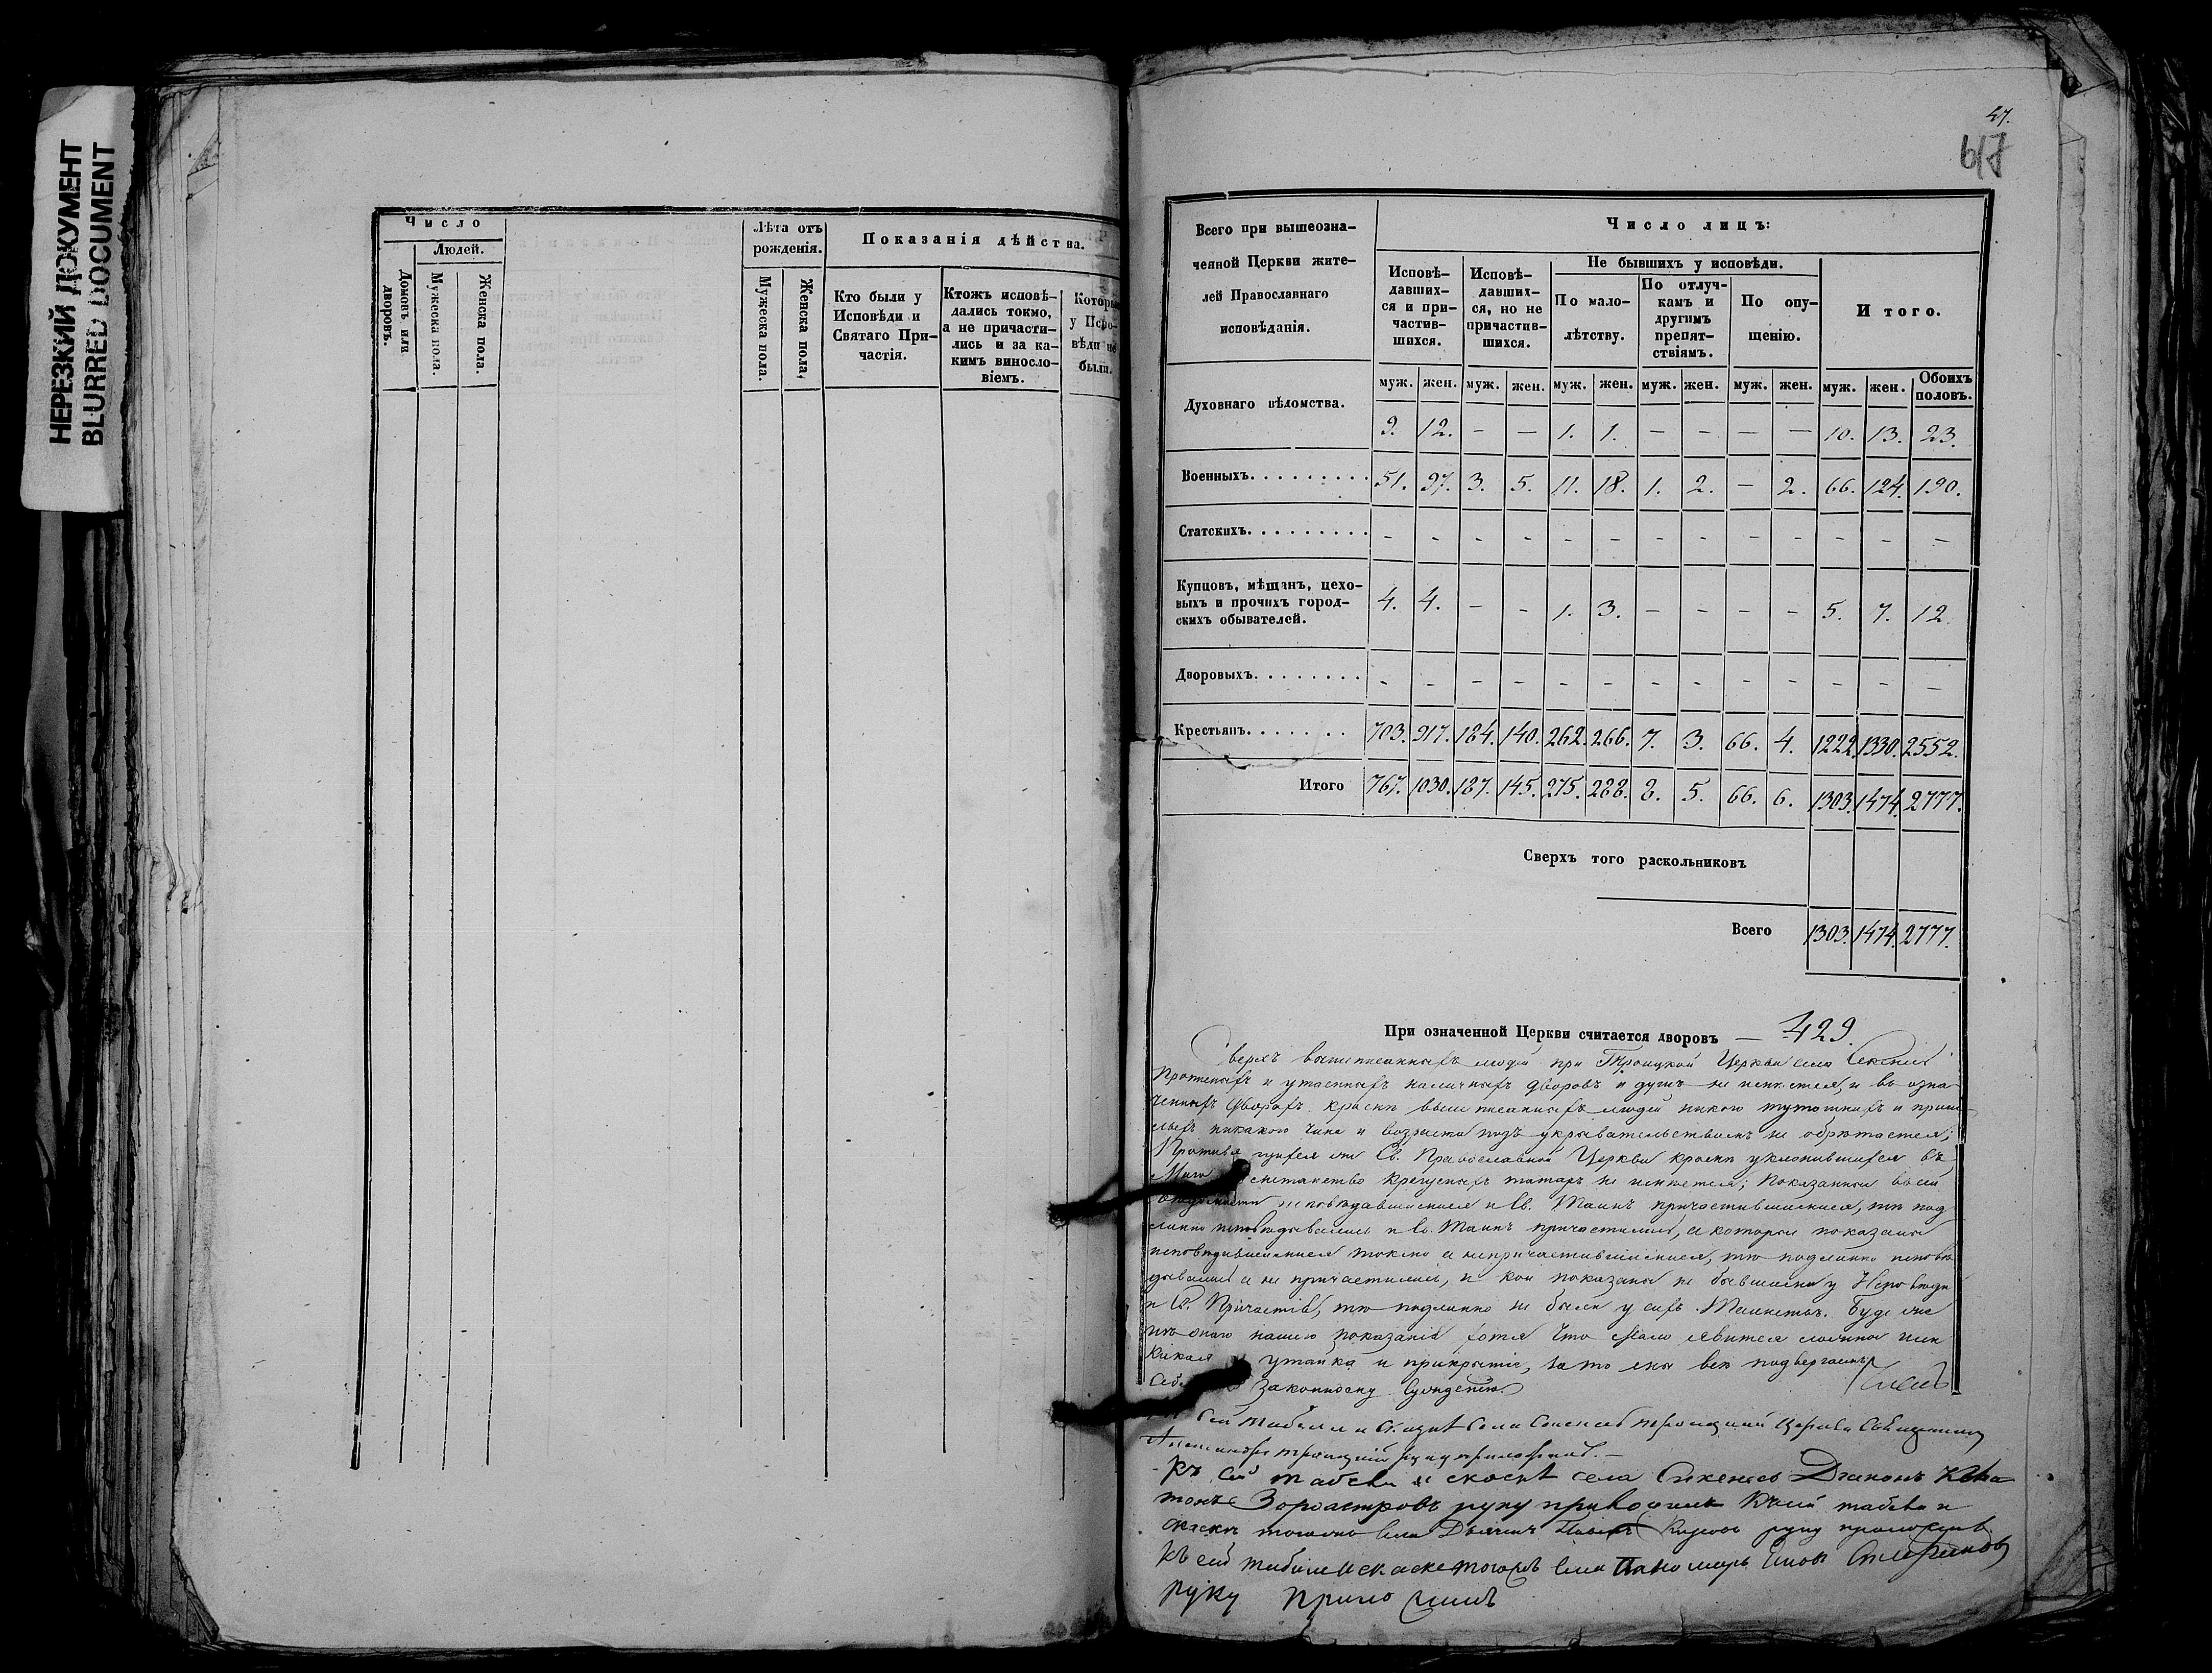 НЕРЕЗКИЙ ДОКУМЕНТ
BLURRED DOCUMENT
Число
Людей.
Домовъ или дворовъ.
Мужеска пола.
Женска пола.
Лѣта отъ рожденія.
Мужеска пола.
Женска пола.
Показанія дѣйства.
Кто были у Исповѣди и Святаго При-
частія.
Ктожъ исповѣ-
дались токмо,
а не причасти-
лись и за ка-
кимъ винносло-
віемъ.
Которые
у Испо-
вѣди не
были.
47.
617
Всего при вышеозна-
ченной Церкви жите-
лей Православнаго
исповѣданія.
Число лицъ:
Исповѣ-
давших-
ся и при-
частив-
шихся.
Исповѣ-
давших-
ся, но не
причастив-
шихся.
Не бывшихъ у исповѣди.
По мало-
лѣтству.
По отлуч-
камъ и
другимъ
препят-
ствіямъ.
По опу-
щенію.
Итого.
муж. жен. муж. жен. муж. жен. муж. жен. муж. жен. муж. жен. Обоихъ половъ.
Духовнаго вѣдомства.
9. 12. — — 1. 1. — — — — 10. 13. 23.
Военныхъ......... 51. 97. 3. 5. 11. 18. 1. 2. — 2. 66. 124. 190.
Статскихъ......... - - - - - - - - - - - - —
Купцовъ, мѣщанъ, цехо-
выхъ и прочихъ город-
скихъ обывателей.
4. 4. — - 1. 3. — - - - 5. 7. 12.
Дворовыхъ........ - - - - - - - - - - - - —
Крестьянъ....... 703. 917. 184. 140. 262. 266. 7. 3. 66. 4. 1222. 1330. 2552.
Итого 767. 1030. 187. 145. 275. 288. 8. 5. 66. 6. 1303. 1474. 2777.
Сверхъ того раскольниковъ
Всего 1303. 1474. 2777.
При означенной Церкви считается дворовъ — 429.
Сверхъ вышеписанныхъ людей при Троицкой Церкви села
и утаенныхъ наличныхъ дворовъ и душъ не имѣется, и въ озна-
ченныхъ дворахъ кромѣ вышеписанныхъ людей никого тутошнихъ и приш-
лыхъ никакого чина и возраста подъ укрывательствомъ не обрѣтается;
Св. Православной Церкви кромѣ уклонившихся въ
крещеныхъ татаръ не имѣется; Показанные
исповѣдавшимися и Св. Таинъ причастившимися, тѣ под-
линно исповѣдывались и Св. Таинъ причастились, а которые показаны
исповѣдавшимися токмо а непричастившимися, тѣ подлинно исповѣ-
дывались а не причастились, и кои показаны не бывшими у Исповѣди
и Св. Причастія, тѣ подлинно не были у сихъ Таинствъ. Буде же
оного нашего показанія хотя что мало явится ложно или
какая утайка и прикрытіе, за то мы всѣ подвергаемъ
себя законному сужденію
сей табели и
Троицкой Церкви Священникъ
руку приложилъ.—
Къ сей табели и скаскѣ села Діаконъ
Зороастровъ руку приложилъ Къ сей табели и
скаскѣ тогожъ села руку приложилъ
Къ сей табели и скаске тогожъ села Пономарь
руку приложилъ